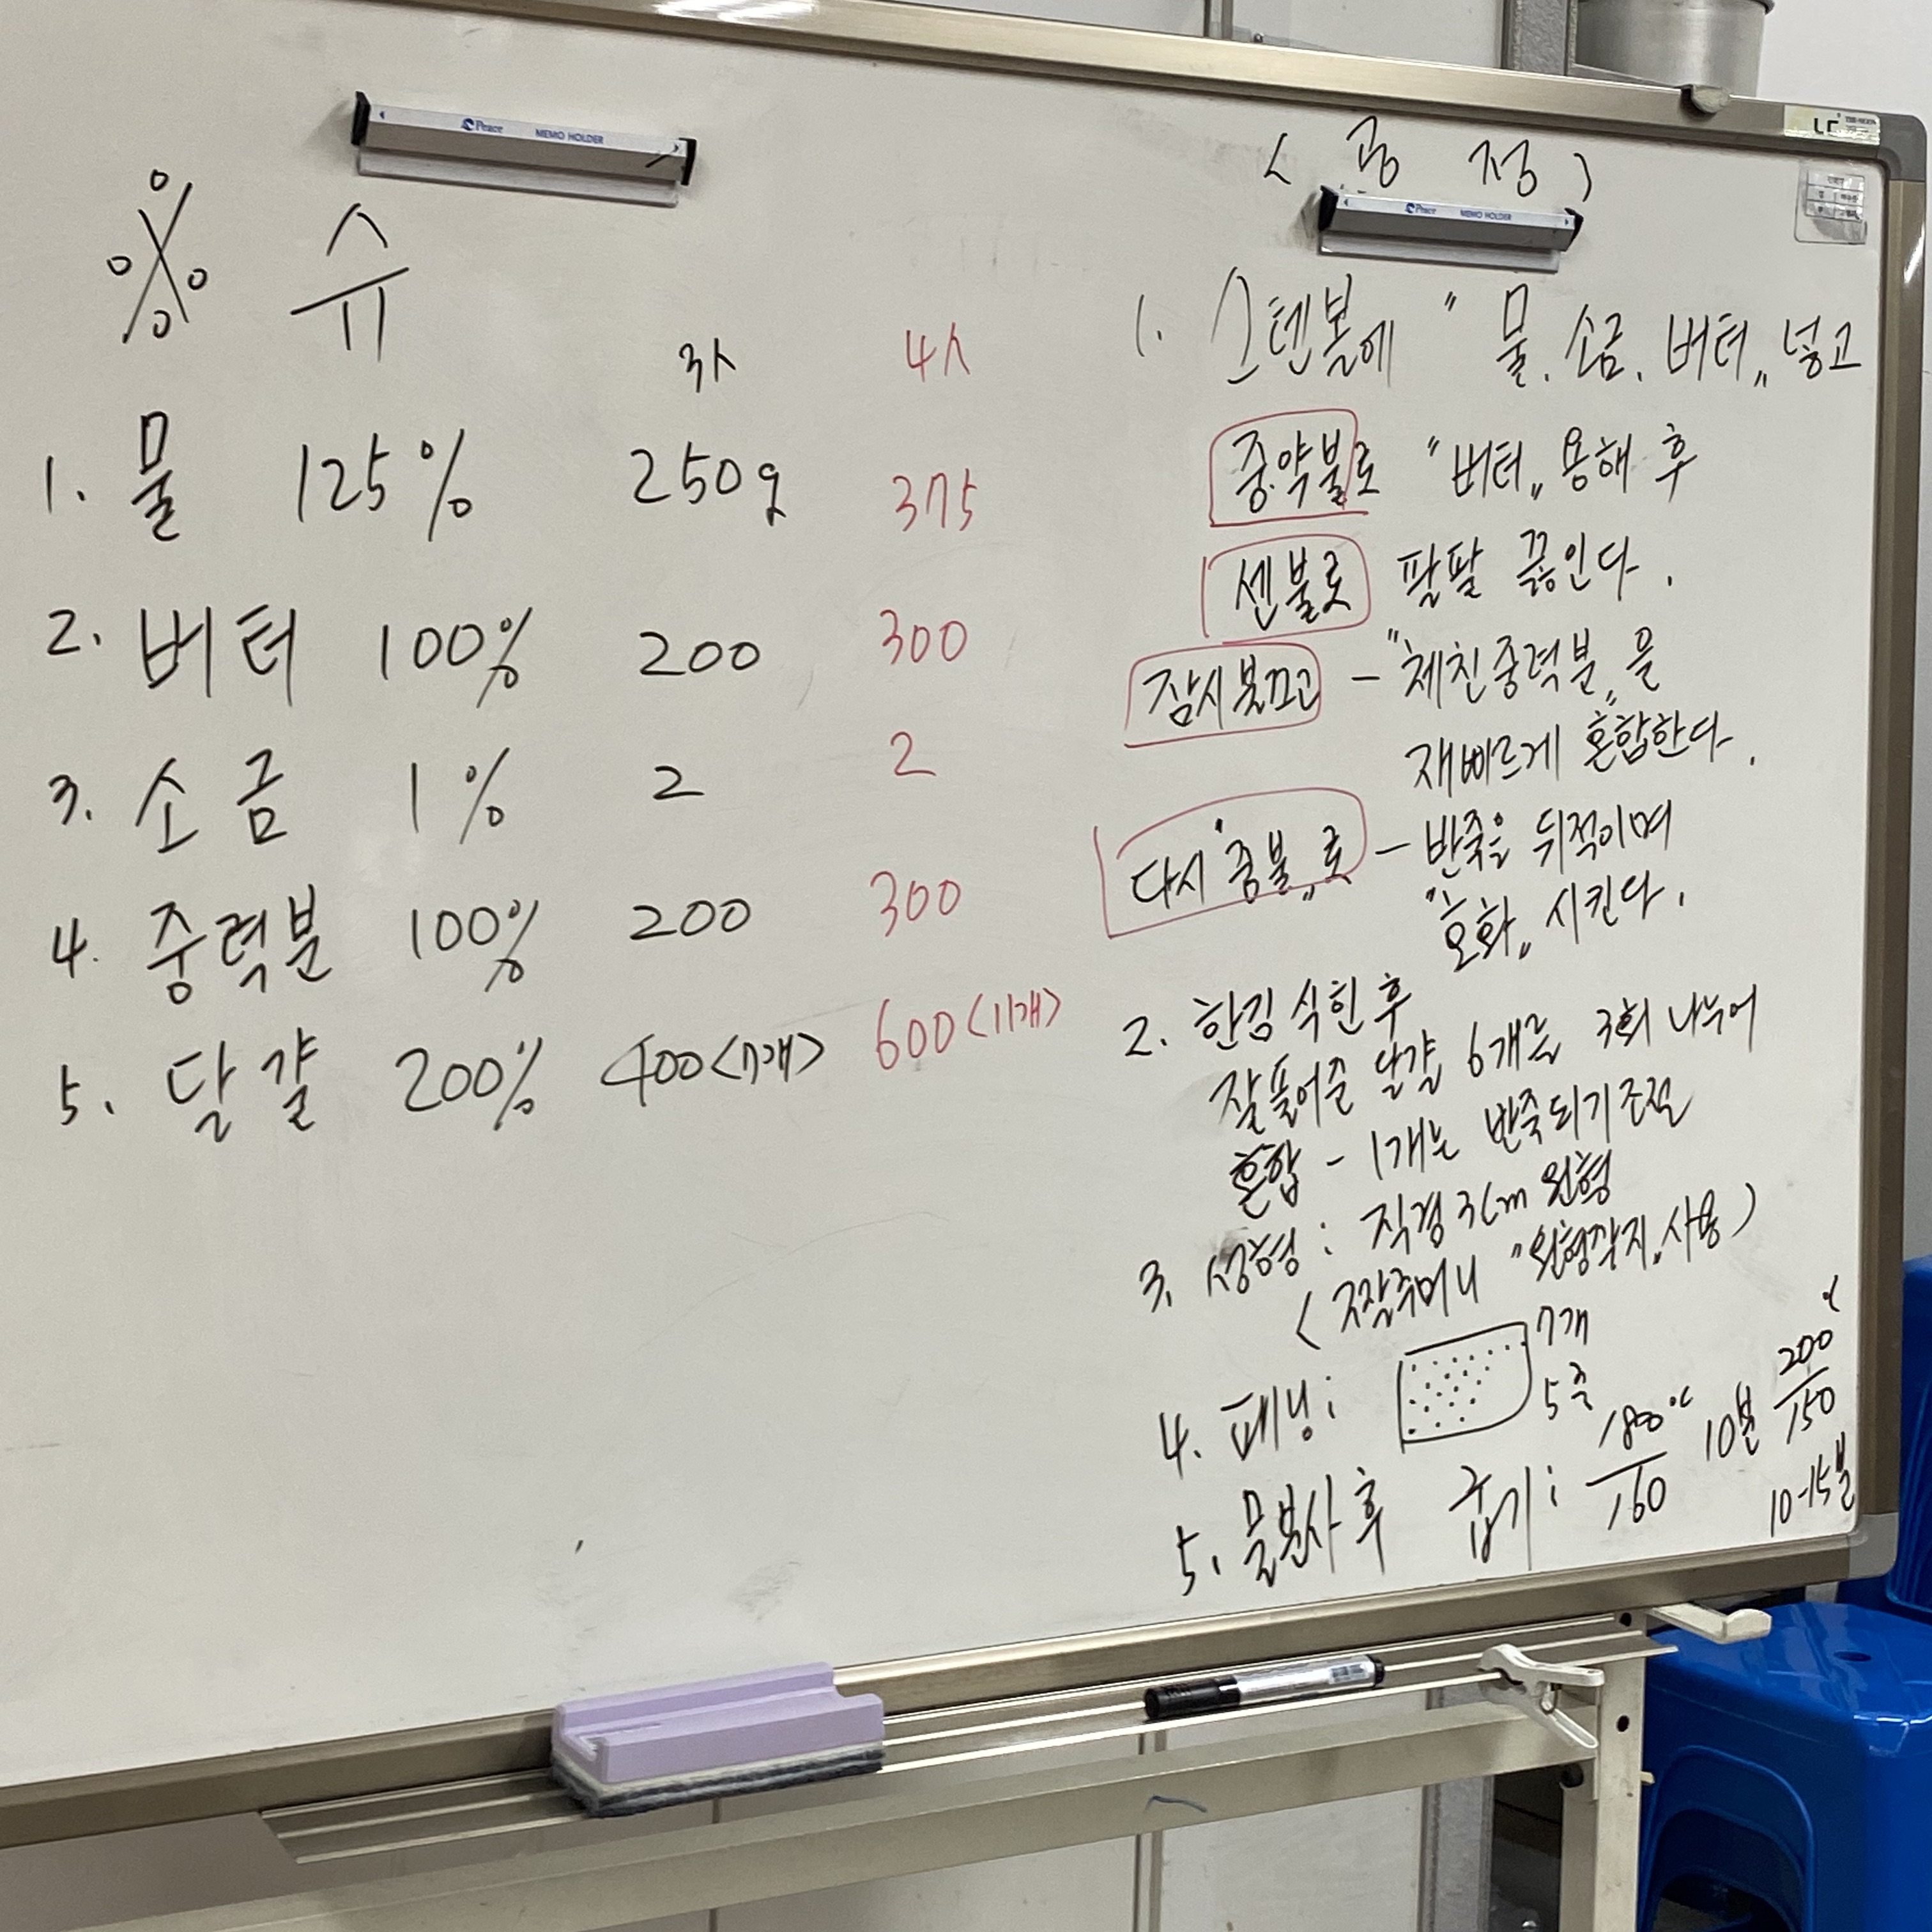 Peace MEMO HOLDER
※ 슈
3人 4人
1. 물 125% 250g 375
2. 버터 100% 200 300
3. 소금 1% 2 2
4. 중력분 100% 200 300
5. 달걀 200% 400<7개> 600<11개>
< 공 정 >
Peace MEMO HOLDER
1. 스텐볼에 "물, 소금, 버터" 넣고
중.약불로 "버터" 용해 후
센불로 팔팔 끓인다.
잠시불끄고 - "체친중력분"을
재빠르게 혼합한다.
다시 "중불"로 - 반죽을 뒤적이며
"호화" 시킨다.
2. 한김 식힌 후
잘풀어준 달걀 6개를 3회 나누어
혼합 - 1개는 반죽되기조절
3. 성형 : 직경 3cm 원형
< 짤주머니 "원형깍지" 사용 )
4. 패닝 : 7개
5줄
5. 물분사 후 굽기 : 180℃/160 10분 200℃/150
10-15분